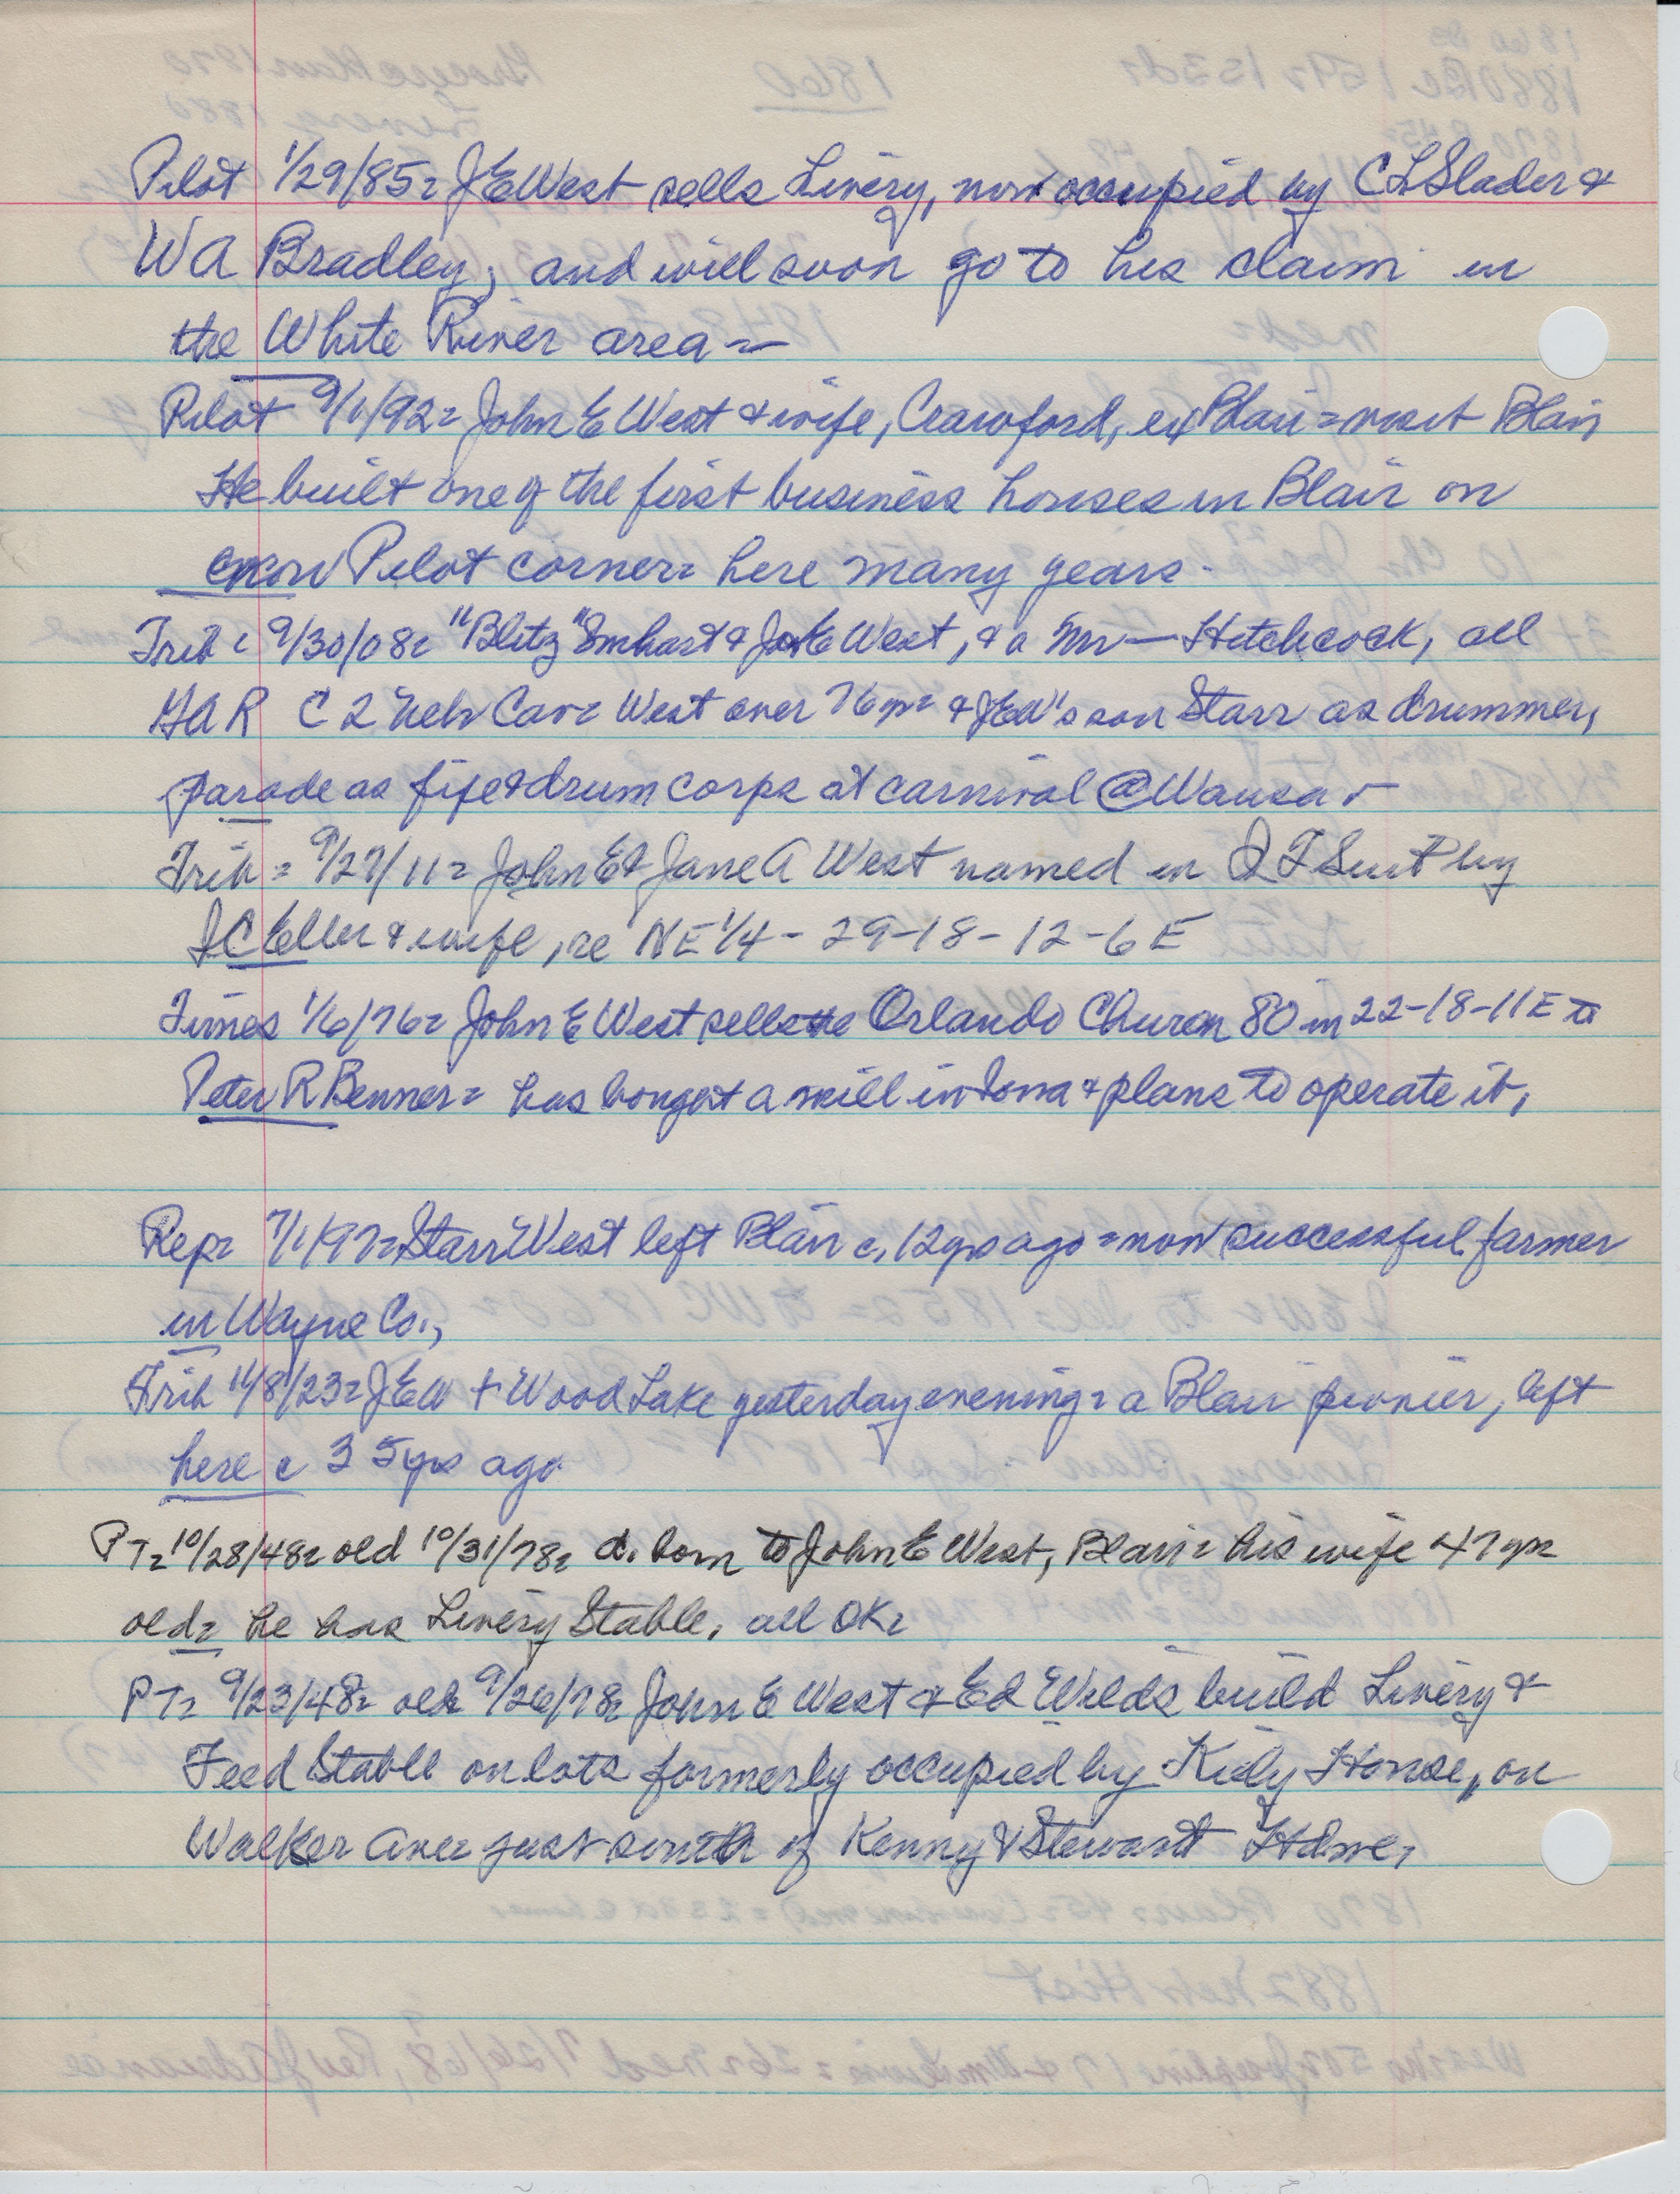 Pilot 1/29/85= JEWest sells Livery, now occupied by CLSlader &
WA Bradley, and will soon go to his claim in
the White River area—
Pilot 9/1/92= John E West & wife, Crawford, ex Blair= visit Blair
He built one of the first business houses in Blair on
Pilot corner= here many years-
Trib= 9/30/08= "Blitz" Emhart & JohE West, & a Mr— Hitchcock, all
GAR C 2 Neb Cav= West over 76 yrs & JEW's son Starr as drummer,
parade as fife & drum corps at carnival @ Wausa
Trib= 9/27/11= John E & Jane A West named in QT Suit by
JCEller & wife, re NE 1/4 - 29-18-12-6E
Times 1/6/76= John E West sells the Orlando 80 in 22-18-11E to
Peter R Benner= has bought a mill in Iowa & plans to operate it,
Rep= 7/1/97= Starr West left Blair c, 12yrs ago= now successful farmer
in Wayne Co.,
Trib 11/8/23= JEW + Wood Lake yesterday evening= a Blair pionier, left
here c 35yrs ago
PT= 10/28/48= old 10/31/78= d. born to John E West, Blair= his wife 47 yrs
old= he has Livery Stable, all OK=
PT= 9/23/48= old 9/26/78= John E West & Ed Wilds build Livery &
Feed Stable on lots formerly occupied by House, on
Walker Ave= just south of Kenny & Stewart Hdwe,